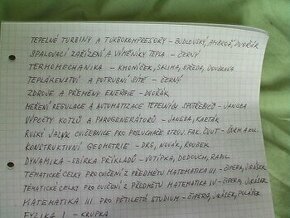 TEPELNÉ TURBÍNY A TURBOKOMPRESORY - BUDLOVSKÝ, DVOŘÁK
SPALOVACÍ ZAŘÍZENÍ A VÝMĚNÍKY TEPLA - ČERNÝ
TERMOMECHANIKA - KALINA,
TEPLÁRENSTVÍ A POTRUBNÍ SÍTĚ - ČERNÝ
ZDROJE A PŘEMĚNY ENERGIE - DVOŘÁK
MĚŘENÍ REGULACE A AUTOMATIZACE TEPELNÝCH - JANOUŠ
VÝPOČTY KOTLŮ A PAROGENERÁTORŮ - JANEBA, KARTÁK
RUSKÝ JAZYK CVIČEBNICE PRO POSLUCHAČE STROJ. FAK. ČVUT -
KONSTRUKTIVNÍ GEOMETRIE - DRS, NOVÁK, ROUBEK
DYNAMIKA - SBÍRKA PŘÍKLADŮ - VOTÍPKA, DEDOUCH, RADIL
TEMATICKÉ CELKY PRO CVIČENÍ Z PŘEDMĚTU MATEMATIKA III - ČIPERA, JIRÁSEK
TEMATICKÉ CELKY PRO CVIČENÍ Z PŘEDMĚTU MATEMATIKA IV - ČIPERA, JIRÁSEK
MATEMATIKA III PRO PĚTILETÁ STUDIUM - ČIPERA, JIRÁSEK,
FYZIKA I - KRUPKA